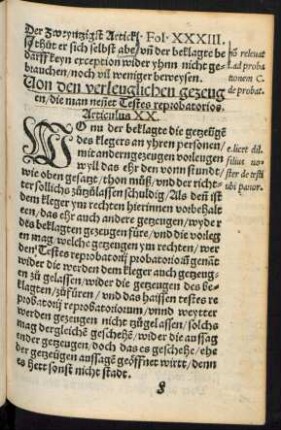 Der Zweyntzigst Artickl. Fol. XXXIII.
so thut er sich selbst abe / vñ der beklagte be
darff keyn exception wider yhnn nicht ge
brauchen / noch vil weniger beweysen.
Von den verleuglichen gezeug
en / die man neñet Testes reprobatorios.
Articulus XX.
WOnn der beklagte die gezeuge
des klegers an yhren personen /
mit andern gezeugen vorleugen
wyll das ehr den vonn stundt /
wie oben gesatzt / thon muß / vnd der rich-
ter sollichs zůzůlassen schuldig / Als deñ ist
dem kleger ym rechten hierinnen vorbehalt
een / das ehr auch andere gezeugen / wyder
des beklagten gezeugen füre / vnd die vorleg
en mag welche gezeugen ym rechten / wer
den Testes reprobatorij probatoriorũ genãt
wider die werden dem kleger auch gezeug-
en zů gelassen / wider die gezeugen des be-
klagten / zůfüren / vnd das hayssen testes re
probatorij reprobatoriorum / vnnd weytter
werden gezeugen nicht zůgelassen / solchs
mag dergleichẽ geschehẽ / wider die aussag
ender gezeugen / doch das es geschehe / ehe
der gezeugen aussage geöffnet wirtt / denn
es hett sonst nicht stadt.
nō releuat
Lad proba
tionem C.
de probat.
e. licet dil.
filius no-
ster de testi